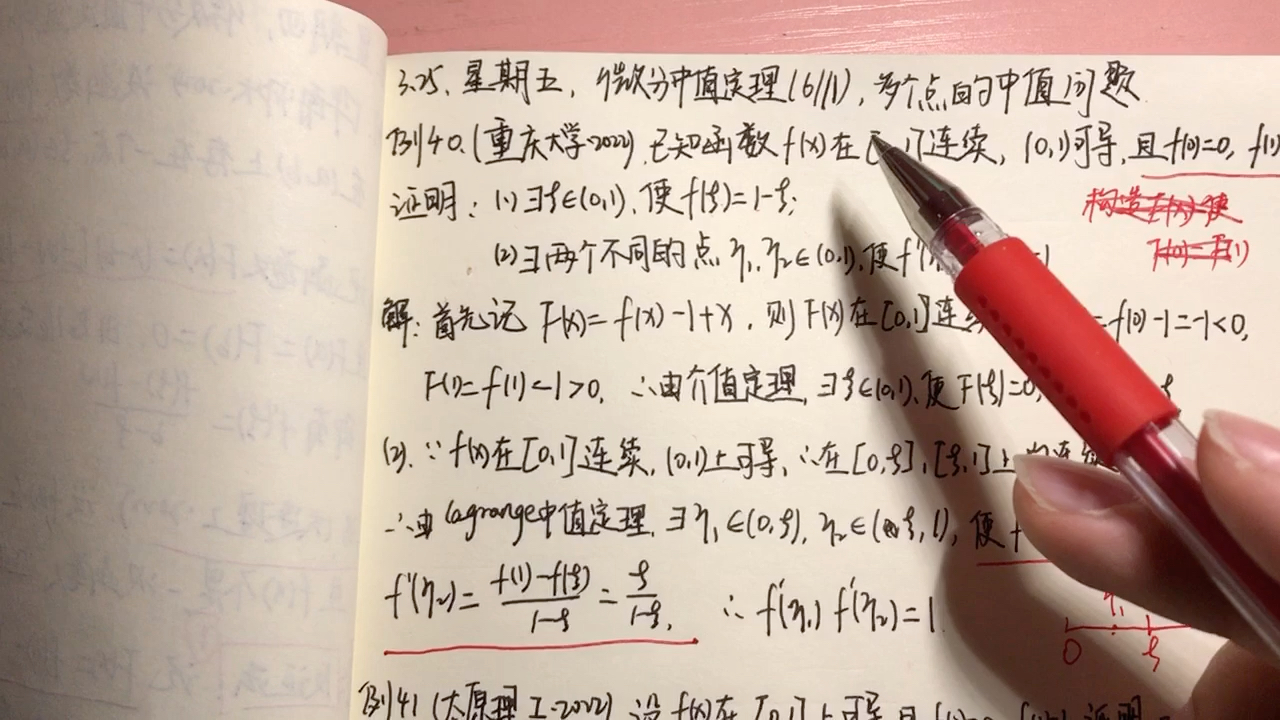 3.25, 星期五, 微分中值定理(6//1), 多个点的中值问题
例40.(重庆大学·2022) 已知函数f(x)在[0,1]连续, (0,1)可导, 且f(0)=0, f(1)
证明: (1) ∃ξ∈(0,1), 使f(ξ)=1-ξ;
构造F(x)使
F(0)=F(1)
(2) ∃两个不同的点η₁,η₂∈(0,1), 使f'
解: 首先记 F(x)=f(x)-1+x, 则F(x)在[0,1]连续 =f(0)-1=-1<0,
F(1)=f(1)-1>0, ∴由介值定理, ∃ξ∈(0,1), 使F(ξ)=0,
(2). ∵f(x)在[0,1]连续, (0,1)上可导, ∴在[0,ξ],[ξ,1]上均连续
∴由Lagrange中值定理, ∃η₁∈(0,ξ), η₂∈(ξ,1), 使f
f'(η₂)=\frac{f(1)-f(ξ)}{1-ξ}=\frac{ξ}{1-ξ}, ∴f'(η₁)f'(η₂)=1
η₁
0 ξ
例41 (太原理工·2022) 设f(x)在[0,1]上可导, 且